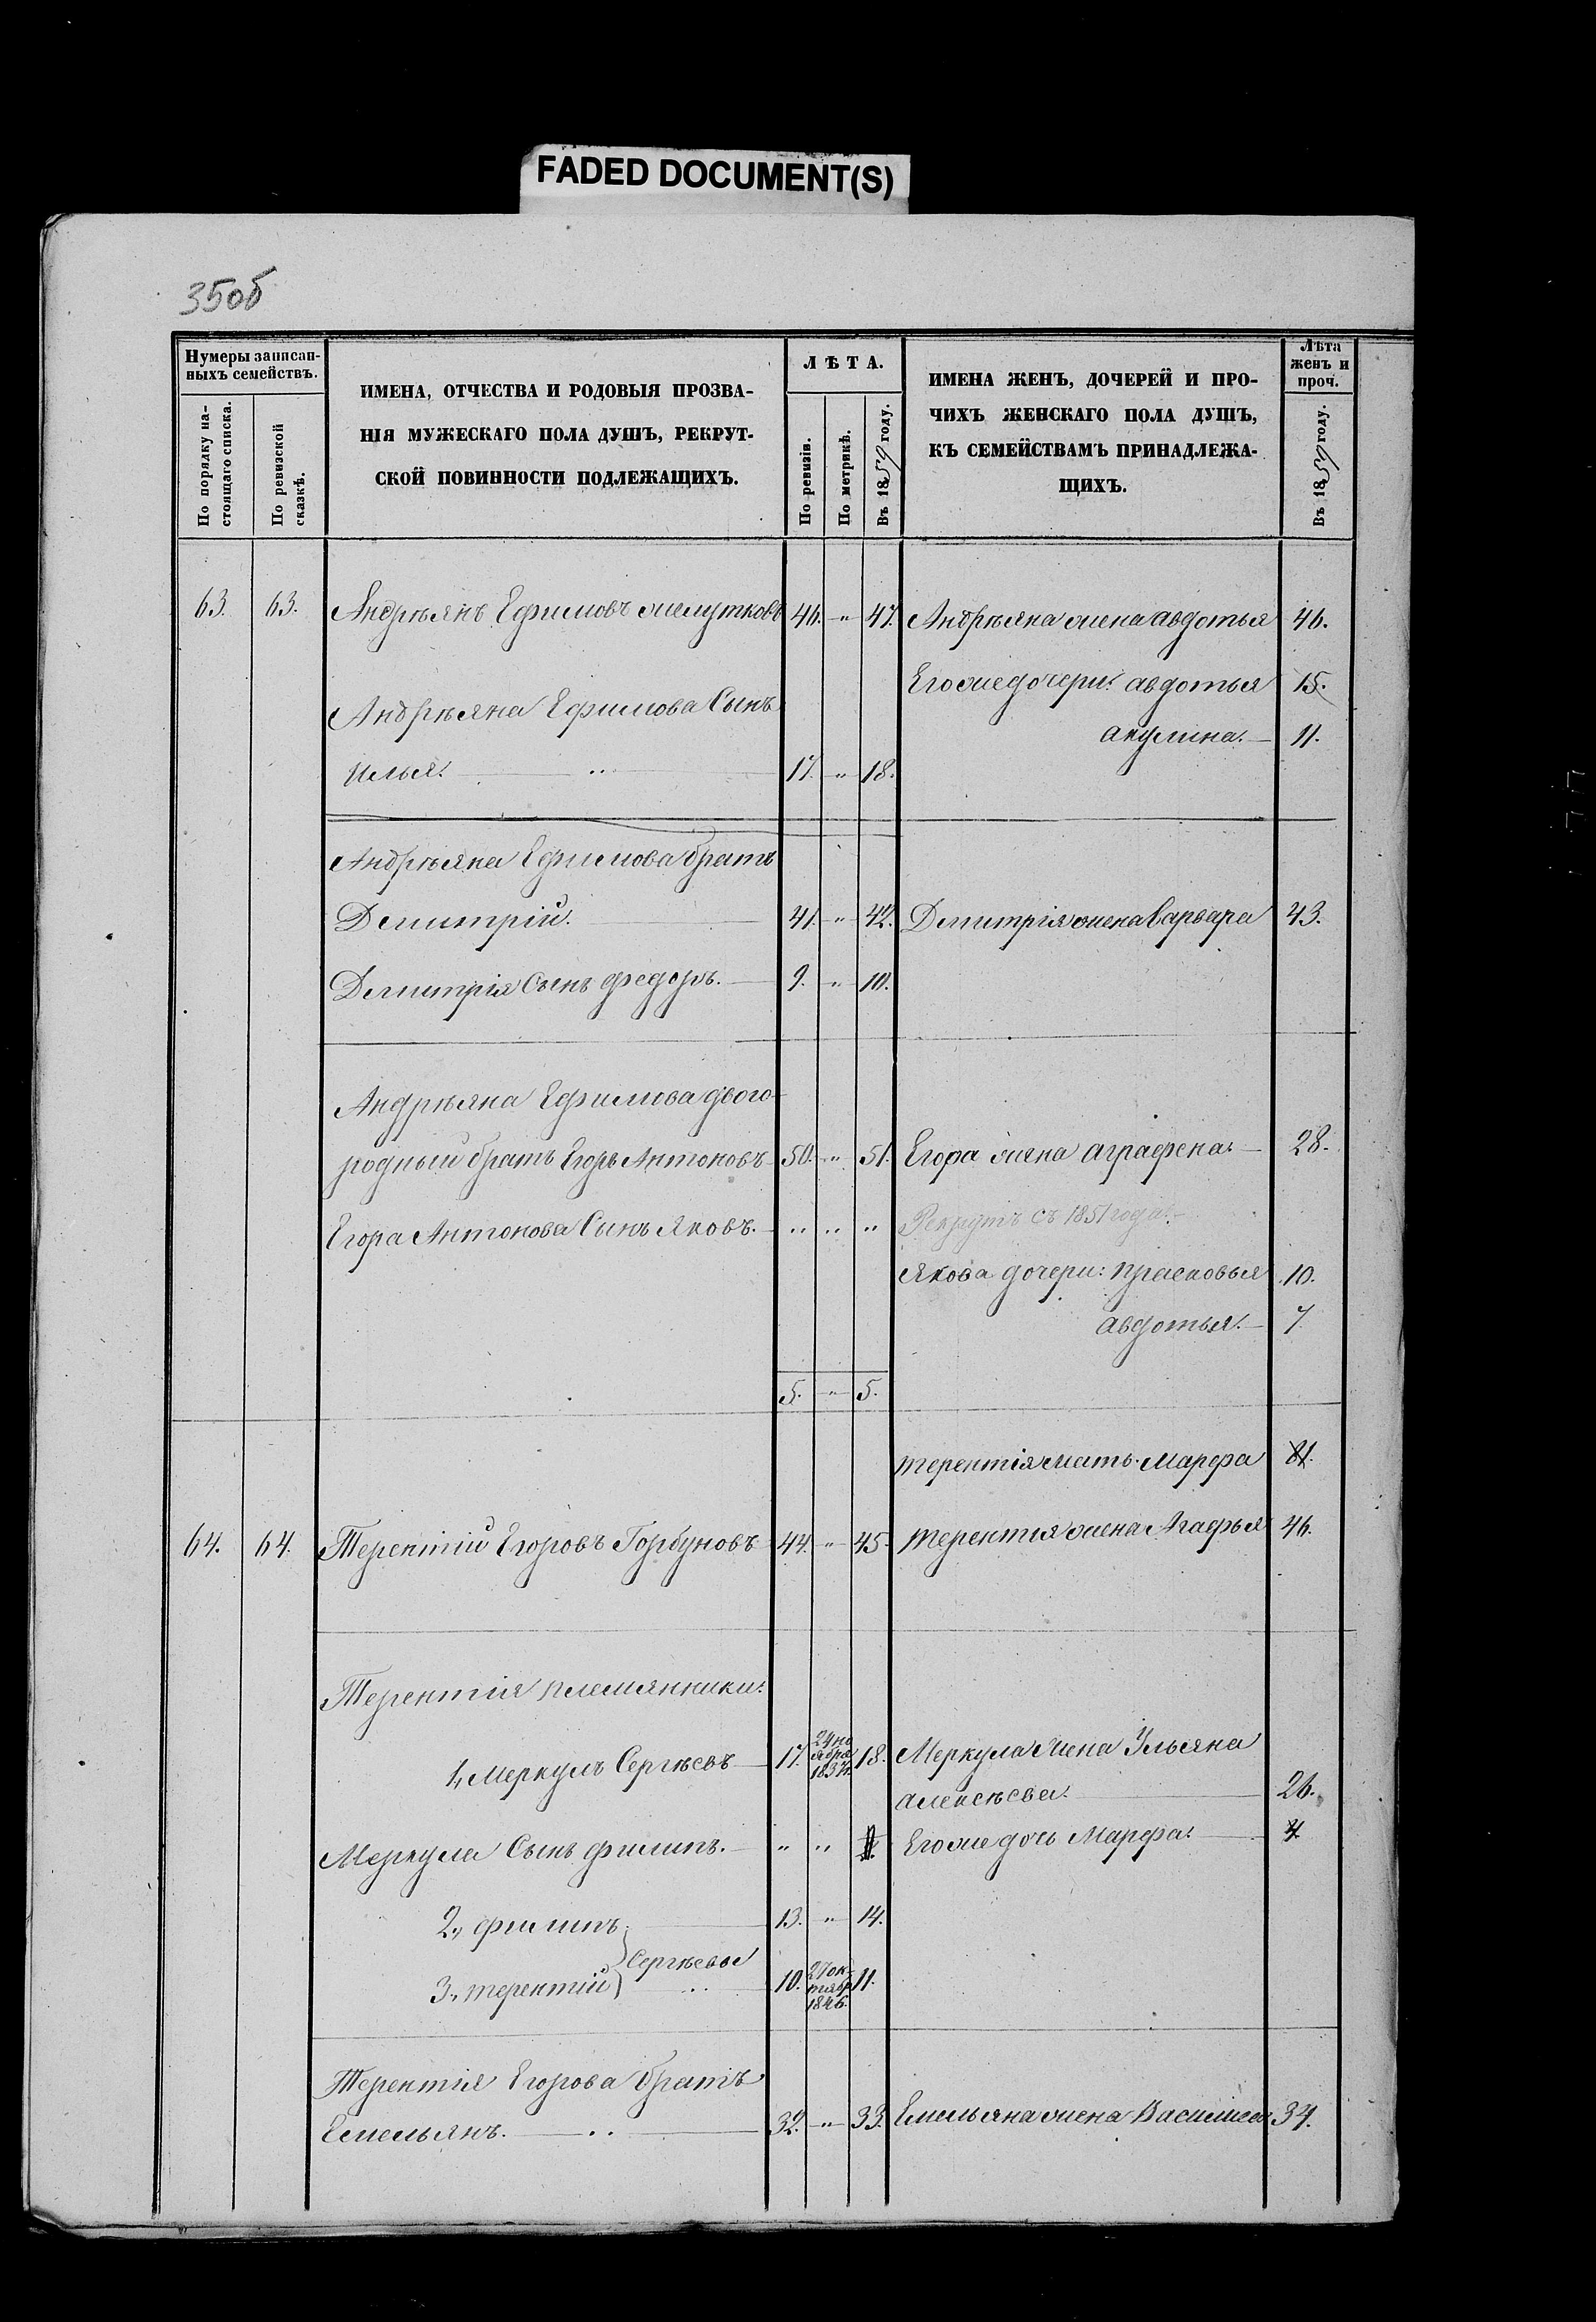 FADED DOCUMENT(S)
35об
Нумеры записан-
ныхъ семействъ.
По порядку на-
стоящаго списка.
По ревизской
сказкѣ.
ИМЕНА, ОТЧЕСТВА И РОДОВЫЯ ПРОЗВА-
НІЯ МУЖЕСКАГО ПОЛА ДУШЪ, РЕКРУТ-
СКОЙ ПОВИННОСТИ ПОДЛЕЖАЩИХЪ.
ЛѢТА.
По ревизіи.
По метрикѣ.
Въ 1859 году.
ИМЕНА ЖЕНЪ, ДОЧЕРЕЙ И ПРО-
ЧИХЪ ЖЕНСКАГО ПОЛА ДУШЪ,
КЪ СЕМЕЙСТВАМЪ ПРИНАДЛЕЖА-
ЩИХЪ.
Лѣта
женъ и
проч.
Въ 1859 году.
63. 63. Андрѣянъ Ефимовъ 46. " 47. Андрѣяна жена авдотья 46.
Его же дочери: авдотья 15.
Андрѣяна Ефимова Сынъ
акулина. 11.
Илья. " 17. " 18.
Андрѣяна Ефимова братъ
Демитрій. 41. " 42. Демитрія жена Варвара 43.
Демитрія Сынъ федоръ. 9. " 10.
Андрѣяна Ефимова двою-
родный братъ Егоръ Антоновъ 50. " 51. Егора жена аграфена. 28.
Егора Антонова Сынъ Яковъ. " " " Рекрутъ съ 1851 года.
Якова дочери: прасковья 10.
авдотья. 7.
5. " 5.
терентія мать Марфа 81.
64. 64. Терентій Егоровъ Горбуновъ 44. " 45. терентія жена Агафья 46.
Терентія племянники:
1, Меркулъ Сергѣевъ 17. 24 но
ября
1837. 18. Меркула жена Ульяна
алексѣева. 26.
Меркула Сынъ филипъ. " " Его же дочь Марфа. 4.
2., филипъ 13. " 14.
Сергѣевы
3., терентій " 10. 27 ок-
тябр
1846. 11.
Терентія Егорова братъ
Емельянъ. " 32. " 33. Емельяна жена Василиса 34.